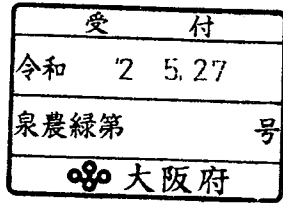 受 付
令和 '2 5.27
泉農緑第 号
大阪府